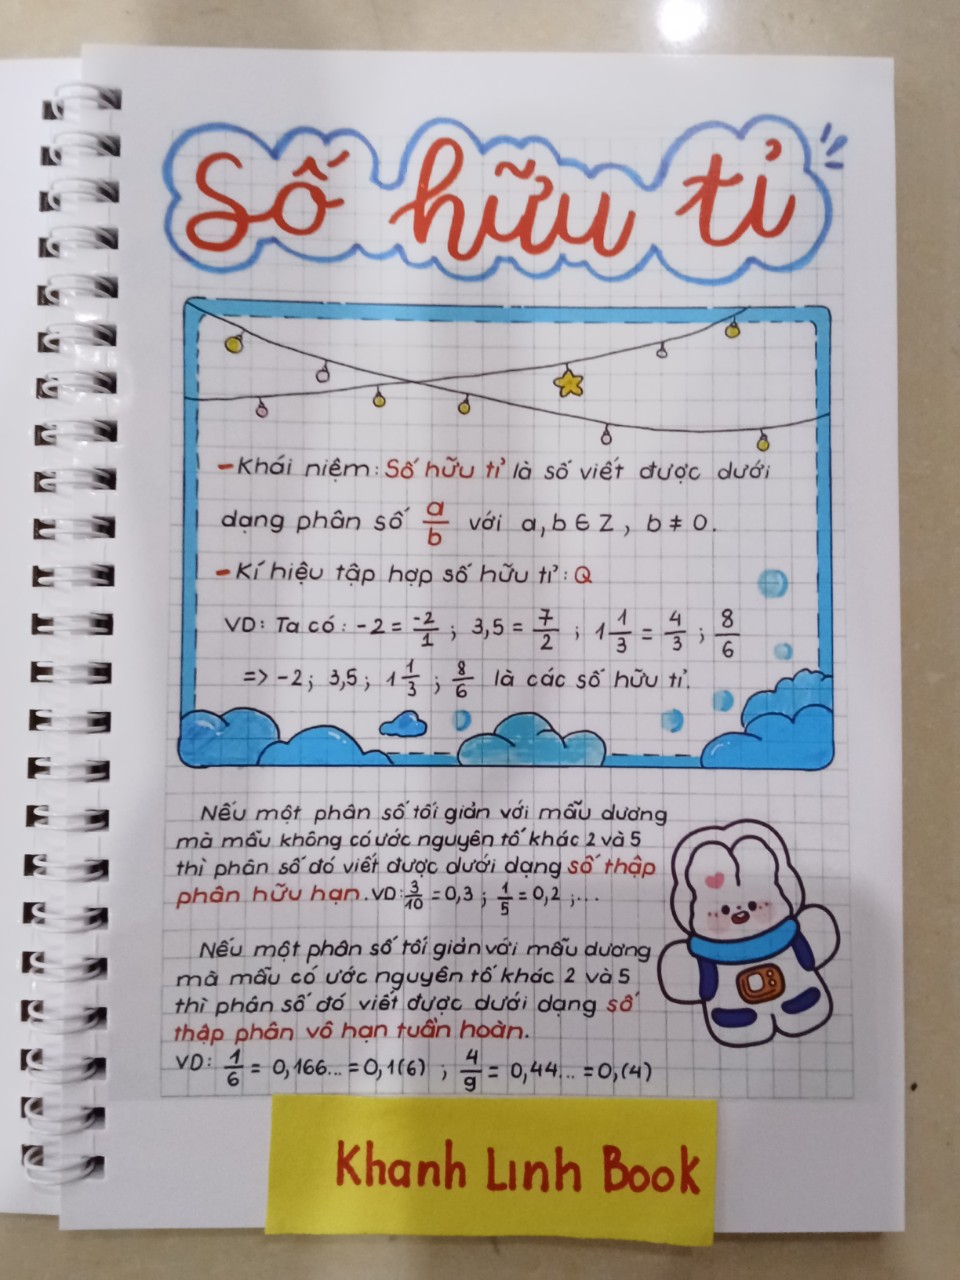 Số hữu tỉ
- Khái niệm: Số hữu tỉ là số viết được dưới
dạng phân số a/b với a, b ∈ Z, b ≠ 0.
- Kí hiệu tập hợp số hữu tỉ: Q
VD: Ta có: -2 = -2/1 ; 3,5 = 7/2 ; 1 1/3 = 4/3 ; 8/6
=> -2 ; 3,5 ; 1 1/3 ; 8/6 là các số hữu tỉ.
Nếu một phân số tối giản với mẫu dương
mà mẫu không có ước nguyên tố khác 2 và 5
thì phân số đó viết được dưới dạng số thập
phân hữu hạn. VD: 3/10 = 0,3 ; 1/5 = 0,2 ;...
Nếu một phân số tối giản với mẫu dương
mà mẫu có ước nguyên tố khác 2 và 5
thì phân số đó viết được dưới dạng số
thập phân vô hạn tuần hoàn.
VD: 1/6 = 0,166... = 0,1(6) ; 4/9 = 0,44... = 0,(4)
Khanh Linh Book